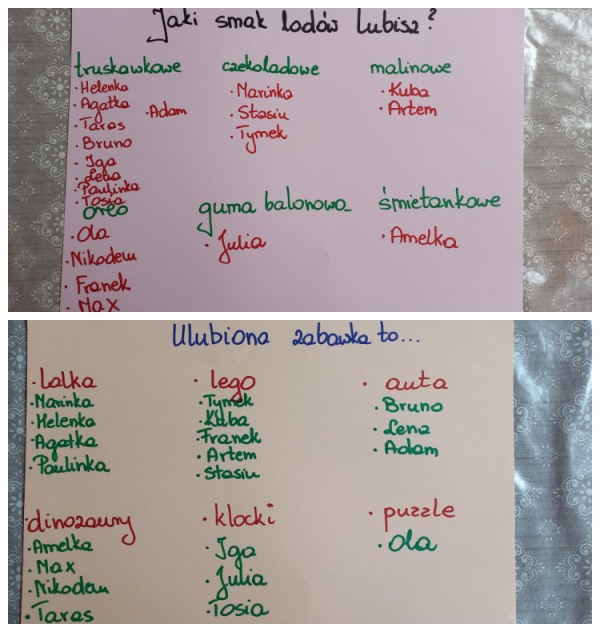 Jaki smak lodów lubisz?
truskawkowe
· Helenka
· Agatka
· Taras
· Adam
· Bruno
· Iga
· Lena
· Paulinka
· Tosia
czekoladowe
· Marinka
· Stasiu
· Tymek
malinowe
· Kuba
· Artem
oreo
· Ola
· Nikodem
· Franek
· Max
guma balonowa
· Julia
śmietankowe
· Amelka
Ulubiona zabawka to...
· lalka
· Marinka
· Helenka
· Agatka
· Paulinka
· lego
· Tymek
· Kuba
· Franek
· Artem
· Stasiu
· auta
· Bruno
· Lena
· Adam
· dinozaury
· Amelka
· Max
· Nikodem
· Taras
· klocki
· Iga
· Julia
· Tosia
· puzzle
· Ola